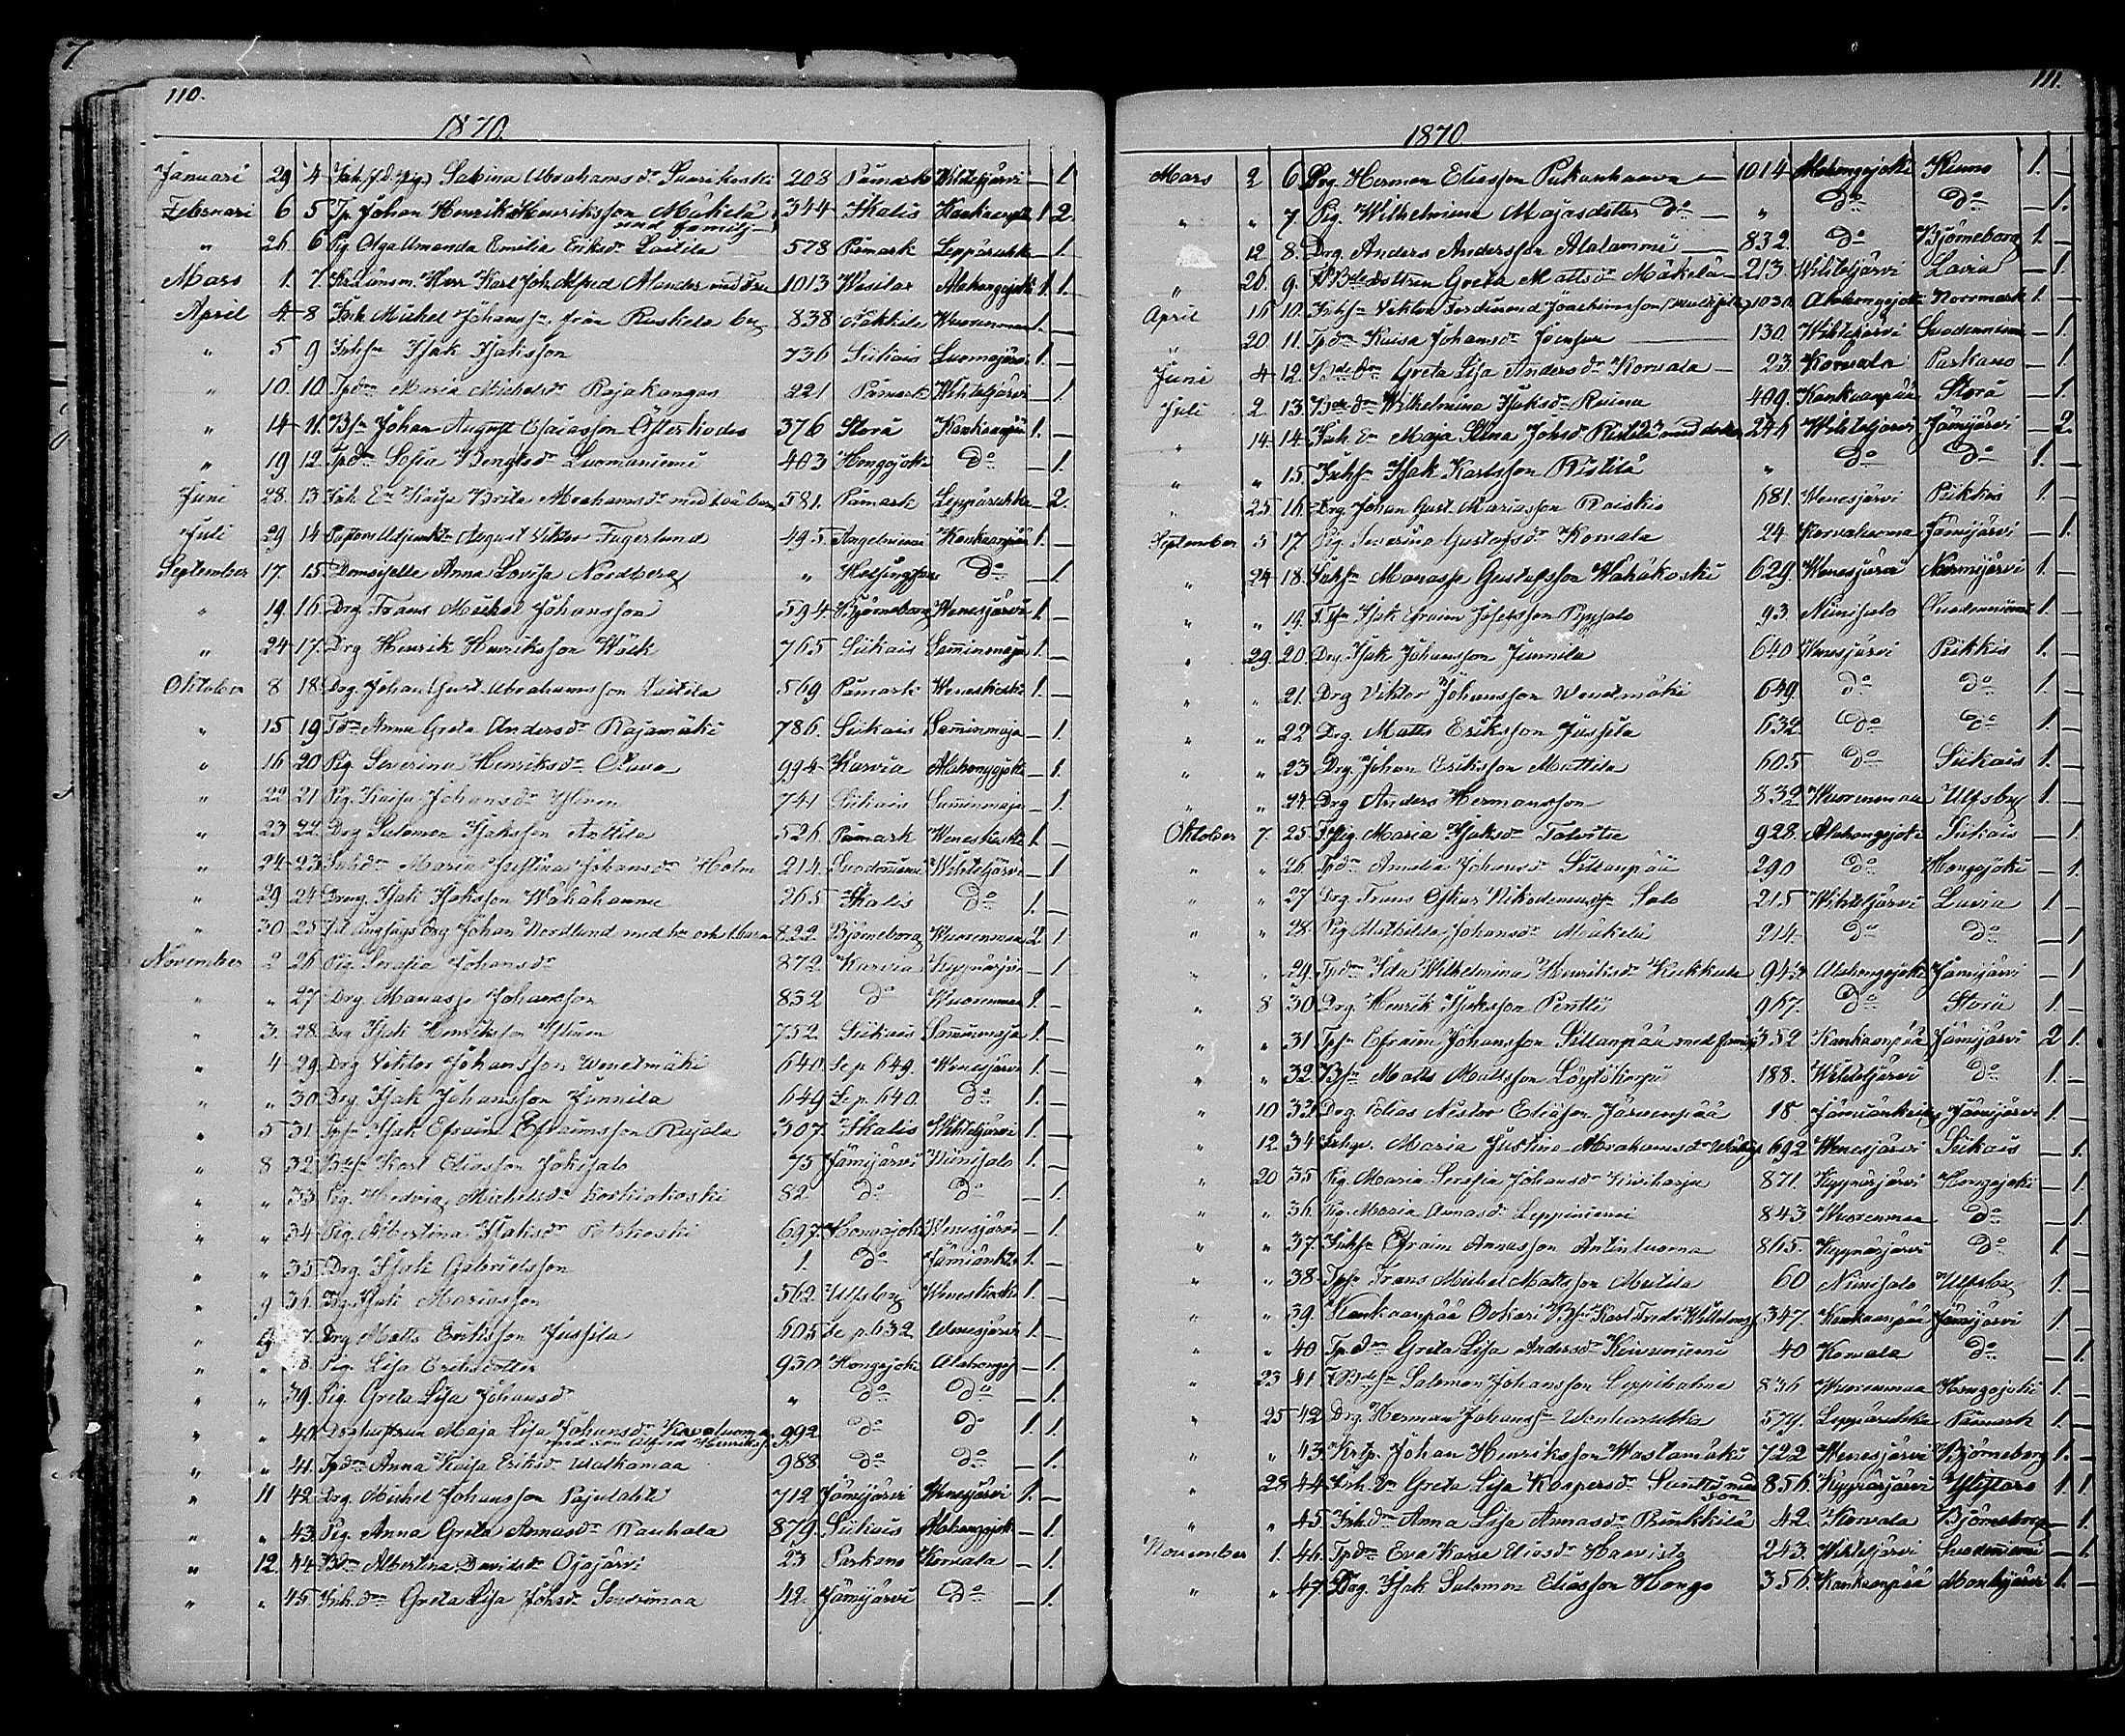 110.
1870.
Januari 29 4 Sabina Abrahamsdr Suurikoski 208 Påmark Wihteljärvi — 1
Februari 6 5 Tp. Johan Henrik Henriksson Mäkelä 344 Ikalis Kankaanpää 1 2
med familj
" 26 6 Pig Olga Amanda Emilia Eriksdr Laitila 578 Påmark Leppäruhka — 1.
Mars 1. 7. Länsm. Herr Karl Joh. Alfred Alander med Fru 1013 Alahongojoki 1 1.
April 4. 8 Inh. Michel Johanss. från Ruskela by 838 Nakkila Wuorenmaa 1. —
" 5 9 Inhsn Isak Isaksson 736 Siikais Luomajärvi 1. —
" 10. 10 Tpdrn Maria Michelsdr Rajakangas 221 Påmark Wihteljärvi — 1
" 14 11. Bsn Johan August Esaiasson Österhodas 376 Storå Kankaanpää 1. —
" 19 12 Tpdrn Sofia Bengtsdr Luomaniemi 403 Hongojoki Do — 1.
Juni 28. 13 Inh. Ea Kaisa Brita Abrahamsdr med två barn 581. Påmark Leppäruhka — 2.
Juli 29 14 Pastors Adjunkten August Viktor Fagerlund 495 Angelniemi Kankaanpää 1. —
September 17. 15. Demoiselle Anna Lovisa Nordberg " Helsingfors Do — 1
" 19 16 Drg Frans Michel Johansson 594 Björneborg Wenesjärvi 1. —
" 24 17. Drg Henrik Henriksson Wäik 765 Siikais Samminmaja 1. —
Oktober 8 18. Drg. Johan Gust. Abrahamsson Laitila 569 Påmark Weneskoski 1. —
" 15 19 Anna Greta Andersdr Rajamäki 786. Siikais Samminmaja — 1.
" 16 20 Pig. Severina Henriksdr 994 Karvia Alahongojoki — 1.
" 22 21 Pig. Kaisa Johansdr Ylinen 741 Siikais Samminmaja — 1.
" 23 22. Drg Salomon Isaksson Anttila 526. Påmark Weneskoski 1. —
" 24 23 Maria Justina Johansdr Holm 214. Suodenniemi Wihteljärvi — 1
" 29 24 Dreng. Isak Isaksson Wähähannu 265 Ikalis Do 1. —
" 30 25 Ångsågs Drg Johan Nordlund med hu och 1 barn 822 Björneborg Wuorenmaa 2. 1
November 2 26 Pig. Serafia Johansdr 872. Karvia Kyynärjärvi — 1
" " 27 Drg. Manasse Johansson 832 Do Wuorenmaa 1. —
" 3. 28. Drg Isak Henriksson Ylinen 752. Siikais Samminmaja 1. —
" 4 29. Drg Viktor Johansson Wenetmäki 640. Se p. 649. Wenesjärvi 1. —
" " 30. Drg Isak Johansson Junnila 649 Se p. 640. Do 1. —
" 5 31. Tpsn Isak Efraim Efraimsson Rajala 307. Ikalis Wihteljärvi 1. —
" 8 32. Karl Eliasson Jokisalo 75 Jämijärvi Niinisalo 1. —
" " 33. Pig. Hedvig Michelsdr Koskiokoski 82 Do Do — 1.
" " 34 Pig. Albertina Isaksdr 697. Hongojoki Wenesjärvi — 1.
" " 35 Drg. Isak Gabrielsson 1. Do Jämiänkeidas 1. —
" 9 36. Drg. Isak Mariasson 562 Ulfsby Weneskoski 1. —
" 9 37. Drg Matts Eriksson Jussila 605 Se p. 632 Wenesjärvi 1. —
" " 38. Pig. Lisa Eriksdotter 930 Hongojoki Alahongoj — 1.
" " 39. Pig. Greta Lisa Johansdr " Do Do — 1.
" " 40. Maja Lisa Johansdr Korvaluoma 992 Do Do 1. 1
med son Alfred Henriksson
" " 41. Tpdrn Anna Kaisa Eriksdr Walkamaa 988 Do Do — 1.
" 11 42. Drg. Michel Johansson Pajulahti 712 Jämijärvi Wenesjärvi 1. —
" " 43. Pig. Anna Greta Annasdr Rauhala 879. Siikais Alahongojoki — 1.
" 12. 44 Bdrn Albertina Davidsdr Ojajärvi 23 Parkano Korvala — 1.
" " 45. Inh. drn Greta Lisa Johsdr 42. Jämijärvi Do — 1.
111.
1870
Mars 2 6. Drg. Herman Eliasson Pukanhaava 1014 Alahongojoki Kiumo 1. —
" " 7. Pig. Wilhelmina Majasdotter Do " Do Do — 1.
12 8. Drg. Anders Andersson Alalammi 832. Do Björneborg 1. —
" 26. 9. Greta Mattsdr Mäkelä 213. Wihteljärvi Lavia — 1.
April 16 10. Inhsn Viktor Ferdinand Joachimsson 1030. Alahongojoki Norrmark 1. —
" 20 11. Tpdrn Kaisa Johansdr 130. Wihteljärvi Suodenniemi — 1.
Juni 4 12. Greta Lisa Andersdr Korvala 23. Korvala Parkano — 1
Juli 2 13. Wilhelmina Isaksdr Raina 409. Kankaanpää Storå — 1.
" 14 14. Inh. Ea Maja Stina Johsdr Ristilä med dotter 246 Wihteljärvi Jämijärvi — 2.
" " 15. Inhsn Isak Karlsson Ristilä " Do Do 1. —
" 25 16. Drg. Johan Gust. Mariasson Raiskio 681. Wenesjärvi Piikkis 1. —
September 3 17. Pig. Severina Gustafsdr Korvala 24 Korvaluoma Jämijärvi — 1.
" 24 18. Inhsn Manasse Gustafsson Wähäkoski 629. Wenesjärvi Nurmijärvi 1. —
" " 19. Isak Efraim Josefsson 93. Niinisalo Suodenniemi 1. —
" 29. 20. Drg. Isak Johansson Junnila 640 Wenesjärvi Piikkis 1. —
" " 21. Drg Viktor Johansson Wenetmäki 649. Do Do 1. —
" " 22 Drg Matts Eriksson Jussila 632 Do Do 1. —
" " 23 Drg. Johan Eriksson Mattila 605. Do Siikais 1. —
" " 24. Drg Anders Hermansson 832 Wuorenmaa Ulfsby 1. —
Oktober 7. 25 Maria Isaksdr 928. Alahongojoki Siikais — 1.
" " 26. Tpdrn Amalia Johansdr Sillanpää 290 Do Hongojoki — 1
" " 27 Drg Frans Oskar Nikodemusson Salo 215 Wihteljärvi Lavia 1 —
" " 28 Pig Mathilda Johansdr Mäkelä 214. Do Do — 1
" " 29. Tpdrn Ida Wilhelmina Henriksdr Kukkula 947 Alahongojoki Jämijärvi — 1
" 8 30. Drg. Henrik Isaksson Pentti 967. Do Storå 1. —
" " 31 Tpsn Efraim Johansson Sillanpää med familj 352 Kankaanpää Jämijärvi 2 1.
" " 32 Bsn Matts Mattsson Löytökorpi 188. Wihteljärvi Do 1. —
" 10 33 Drg. Elias Nestor Eliasson Järvenpää 18 Jämiänkeidas Jämijärvi 1. —
" 12. 34 Maria Justina Abrahamsdr 692 Wenesjärvi Siikais — 1.
" 20 35 Pig. Maria Serafia Johansdr Kiviharju 871. Kyynärjärvi Hongojoki — 1.
" " 36. Pig. Maria Annasdr Leppiniemi 843 Wuorenmaa Do — 1
" " 37. Inhsn Efraim Annasson Antinluoma 865. Kyynärjärvi Do 1. —
" " 38 Tpsn Frans Michel Mattsson Mutila 60 Niinisalo Ulfsby 1. —
" " 39. Kankaanpää Ockari Karl Fredr. Wilhelmss. 347. Kankaanpää Jämijärvi 1. —
" " 40 Tpdrn Greta Lisa Andersdr Kiviniemi 40 Korvala Do — 1.
" 23 41 Salomon Johansson Leppihalme 836 Wuorenmaa Hongojoki 1. —
" 25 42 Drg. Herman Johanss. 579. Leppäruhka Påmark 1. —
" " 43. Johan Henriksson Wastamäki 722 Wenesjärvi Björneborg 1. —
" 28 44 Greta Lisa Kaspersdr Luntti med 856. Kyynärjärvi Ylistaro 1 1
son
" " 45. Inh. drn Anna Lisa Annasdr Runkkila 42. Korvala Björneborg — 1.
November 1. 46. Tpdrn Eva Karin Eliasdr Haavisto 243. Wihteljärvi Suodenniemi — 1.
" " 47 Drg. Isak Salomon Eliasson Hongo 356. Kankaanpää Mouhijärvi 1. —